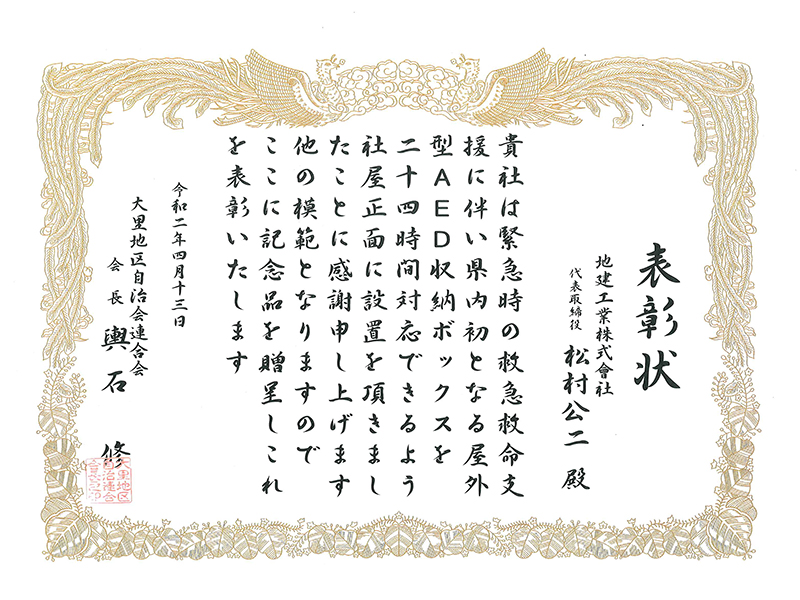 表彰状
地建工業株式會社
代表取締役 松村公二 殿
貴社は緊急時の救急救命支
援に伴い県内初となる屋外
型AED収納ボックスを
二十四時間対応できるよう
社屋正面に設置を頂きまし
たことに感謝申し上げます
他の模範となりますので
ここに記念品を贈呈しこれ
を表彰いたします
令和二年四月十三日
大里地区自治会連合会
会長 輿石 修
大里地区
自治連合
会長之印